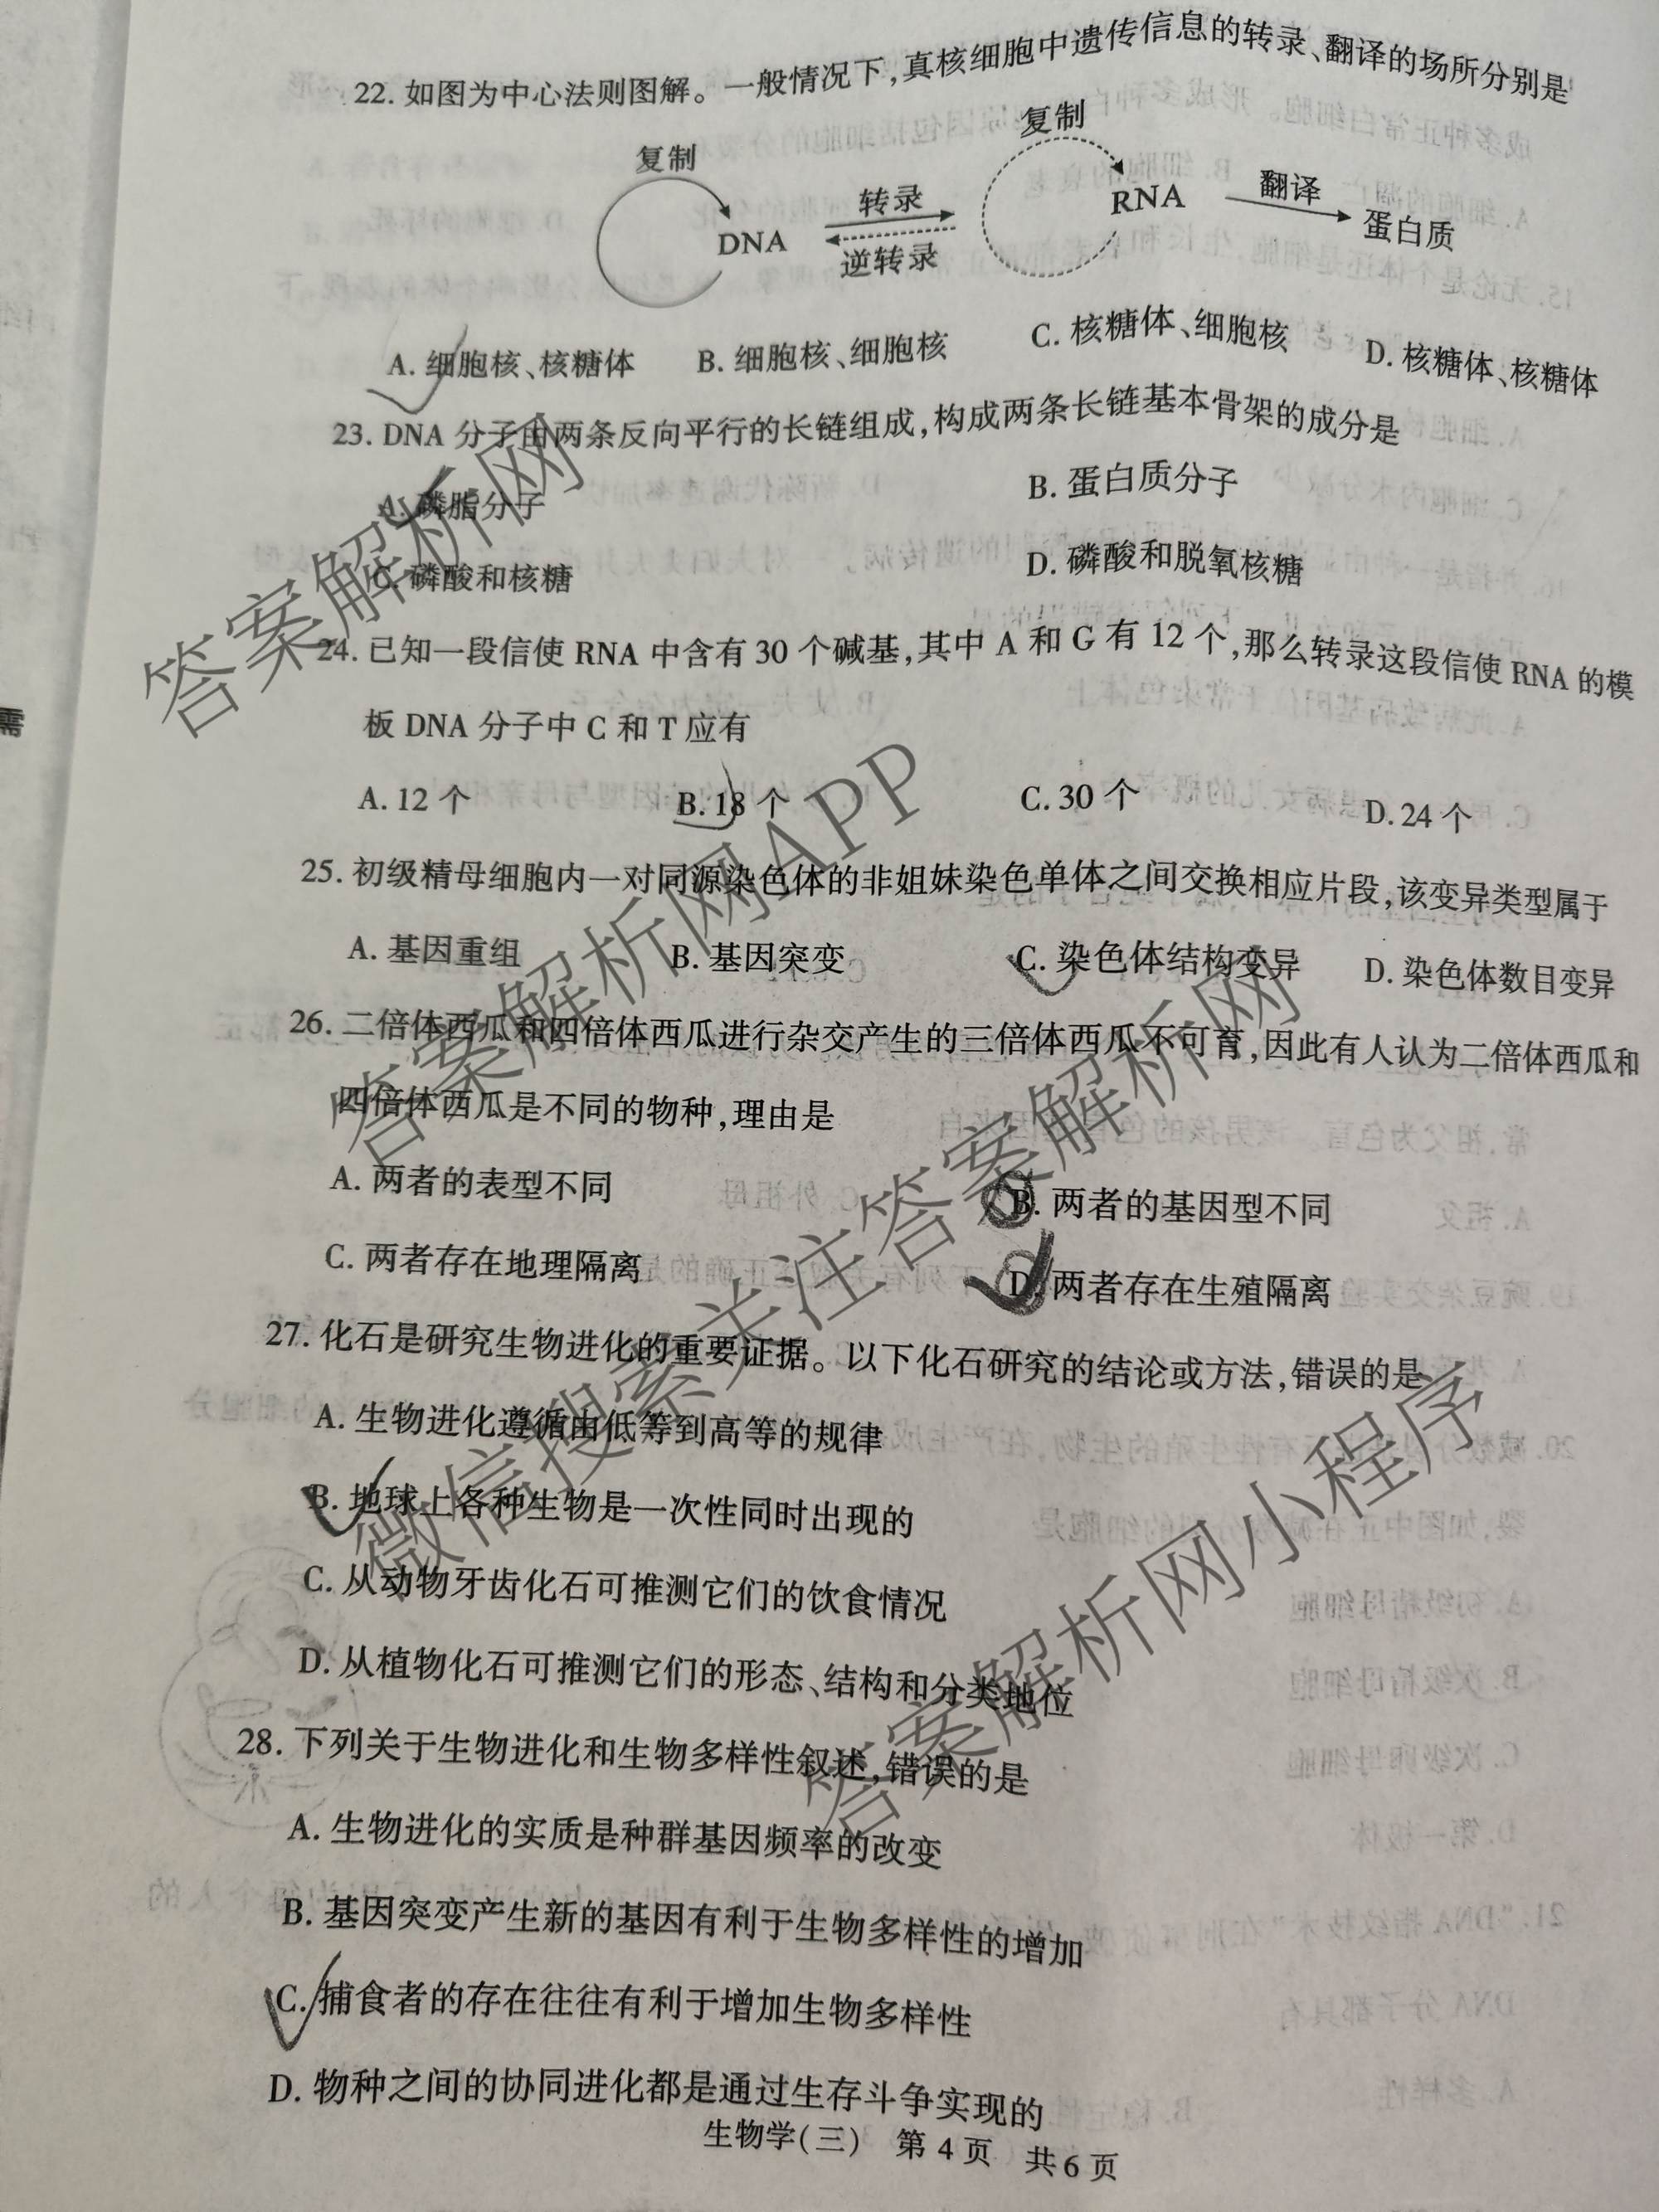 22. 如图为中心法则图解。一般情况下,真核细胞中遗传信息的转录、翻译的场所分别是
复制
复制
DNA
转录
逆转录
RNA
翻译
蛋白质
A. 细胞核、核糖体 B. 细胞核、细胞核 C. 核糖体、细胞核 D. 核糖体、核糖体
23. DNA 分子由两条反向平行的长链组成,构成两条长链基本骨架的成分是
A. 磷脂分子 B. 蛋白质分子
C. 磷酸和核糖 D. 磷酸和脱氧核糖
24. 已知一段信使 RNA 中含有 30 个碱基,其中 A 和 G 有 12 个,那么转录这段信使 RNA 的模
板 DNA 分子中 C 和 T 应有
A. 12 个 B. 18 个 C. 30 个 D. 24 个
25. 初级精母细胞内一对同源染色体的非姐妹染色单体之间交换相应片段,该变异类型属于
A. 基因重组 B. 基因突变 C. 染色体结构变异 D. 染色体数目变异
26. 二倍体西瓜和四倍体西瓜进行杂交产生的三倍体西瓜不可育,因此有人认为二倍体西瓜和
四倍体西瓜是不同的物种,理由是
A. 两者的表型不同 B. 两者的基因型不同
C. 两者存在地理隔离 D. 两者存在生殖隔离
27. 化石是研究生物进化的重要证据。以下化石研究的结论或方法,错误的是
A. 生物进化遵循由低等到高等的规律
B. 地球上各种生物是一次性同时出现的
C. 从动物牙齿化石可推测它们的饮食情况
D. 从植物化石可推测它们的形态、结构和分类地位
28. 下列关于生物进化和生物多样性叙述,错误的是
A. 生物进化的实质是种群基因频率的改变
B. 基因突变产生新的基因有利于生物多样性的增加
C. 捕食者的存在往往有利于增加生物多样性
D. 物种之间的协同进化都是通过生存斗争实现的
生物学(三) 第 4 页 共 6 页
需
答案解析网
答案解析网APP
微信搜索关注答案解析网
答案解析网小程序